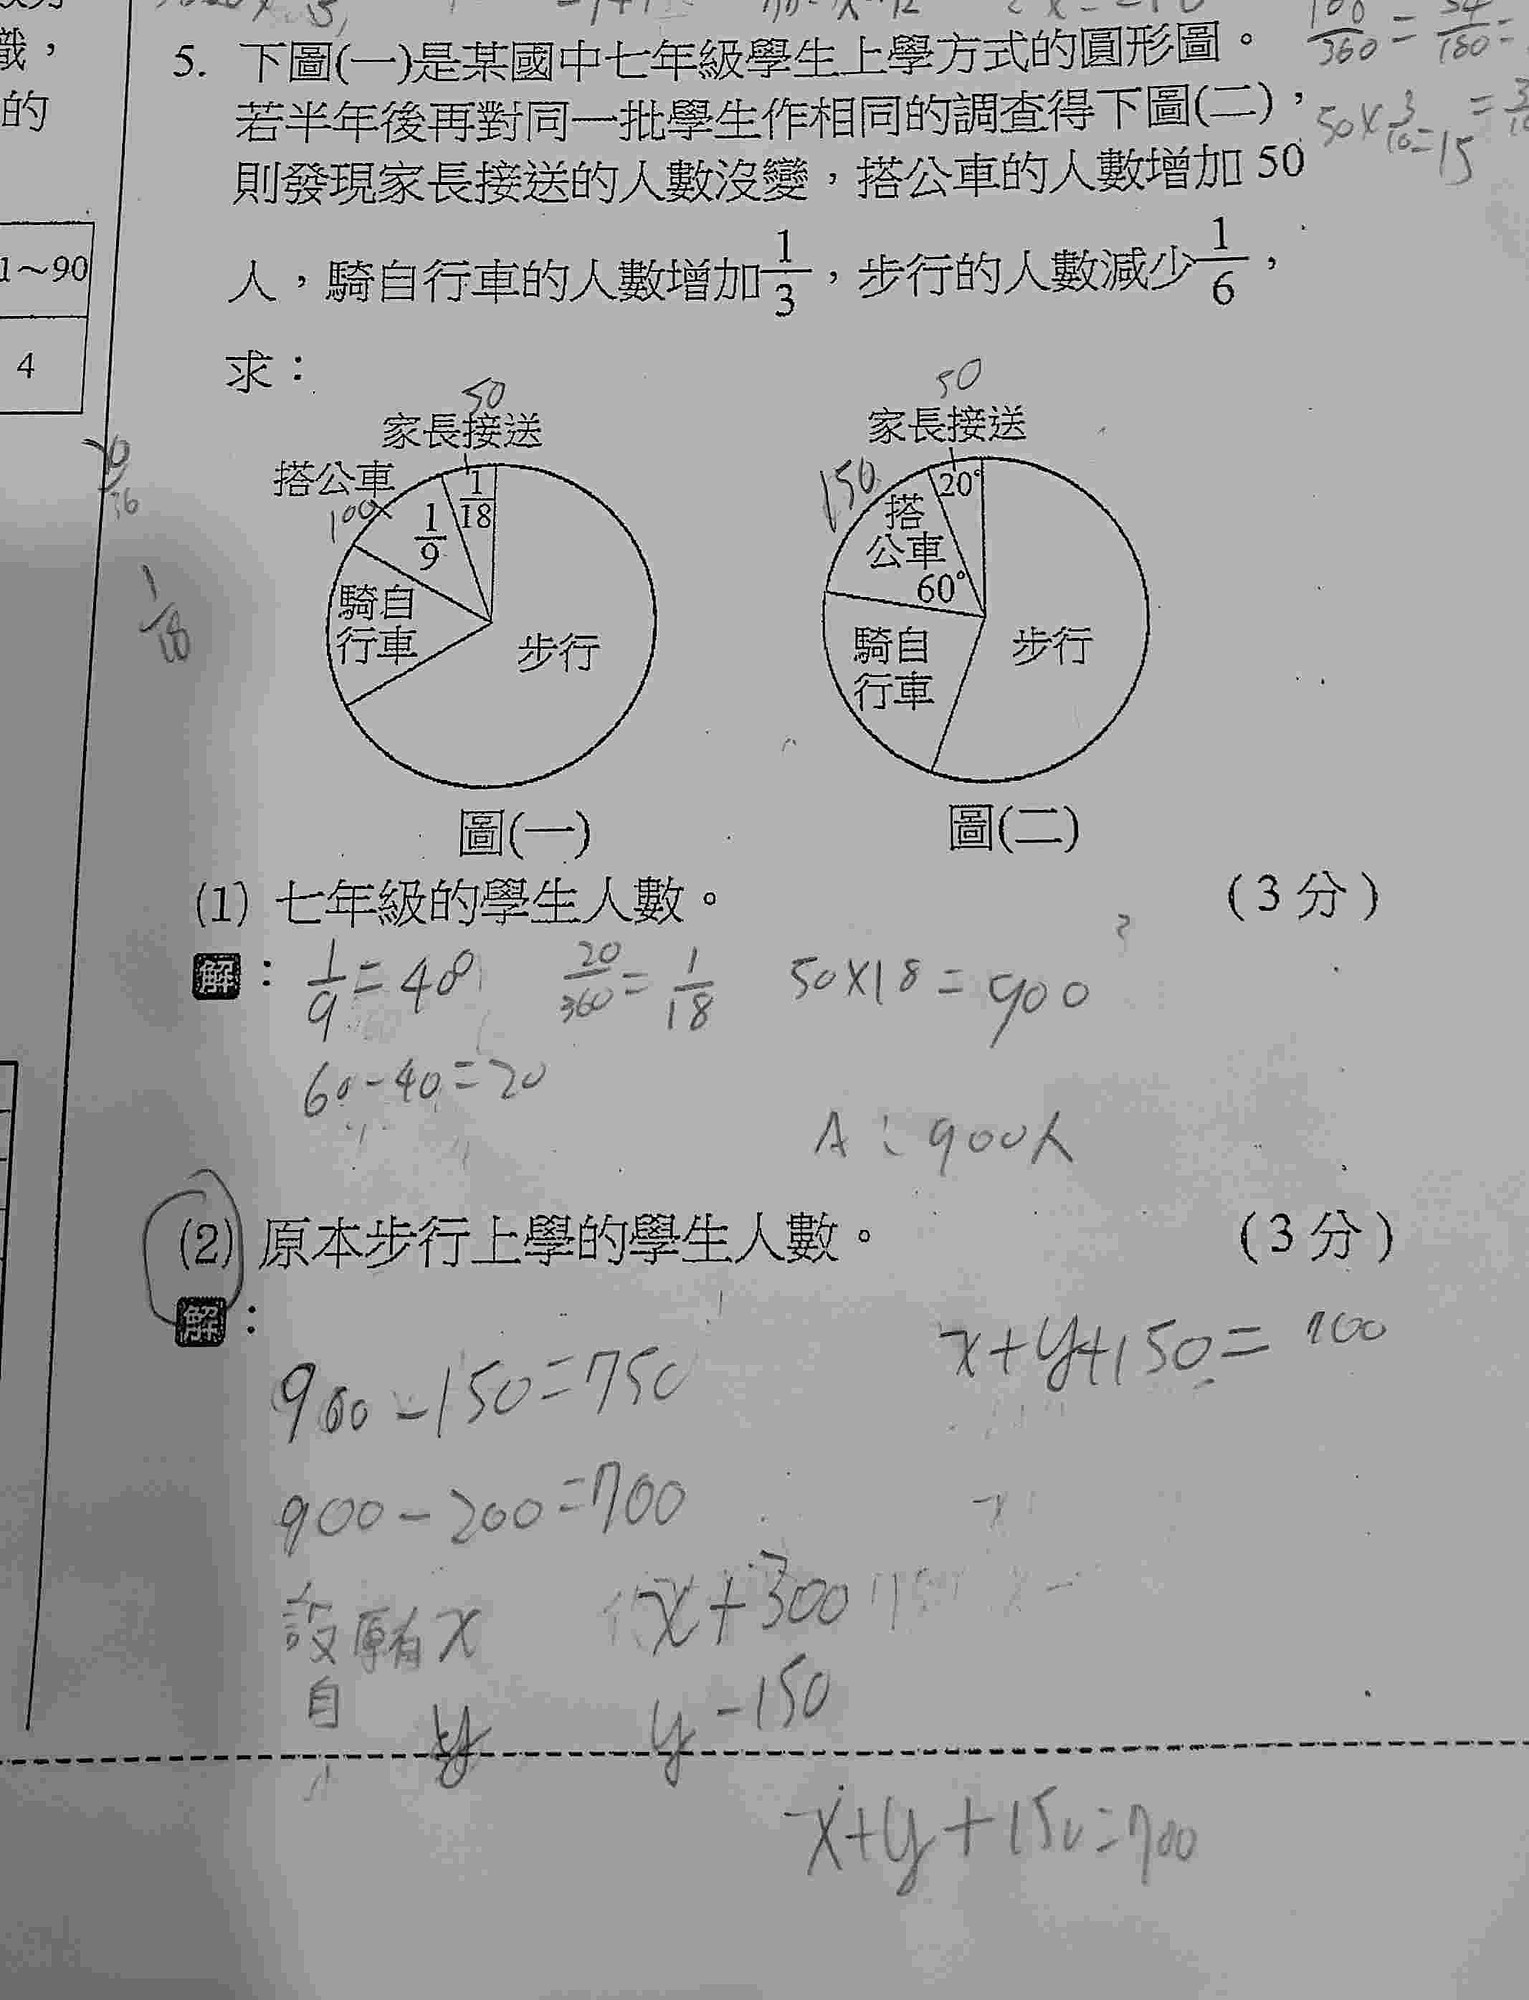 的
1～90
4
5. 下圖(一)是某國中七年級學生上學方式的圓形圖。
若半年後再對同一批學生作相同的調查得下圖(二)，
則發現家長接送的人數沒變，搭公車的人數增加 50
人，騎自行車的人數增加1/3，步行的人數減少1/6，
求：
50×3/10=15
50
家長接送
搭公車
100人
1/18
1/9
騎自
行車
步行
圖(一)
1/18
50
家長接送
150
20°
搭
公車
60°
騎自
行車
步行
圖(二)
(1) 七年級的學生人數。 (3 分)
解：
1/9=40 20/360=1/18 50×18=900
60-40=20
A：900人
(2) 原本步行上學的學生人數。 (3 分)
解：
900-150=750 x+y+150=700
900-200=700
設原有x x+300
自 y y-150
x+y+150=700